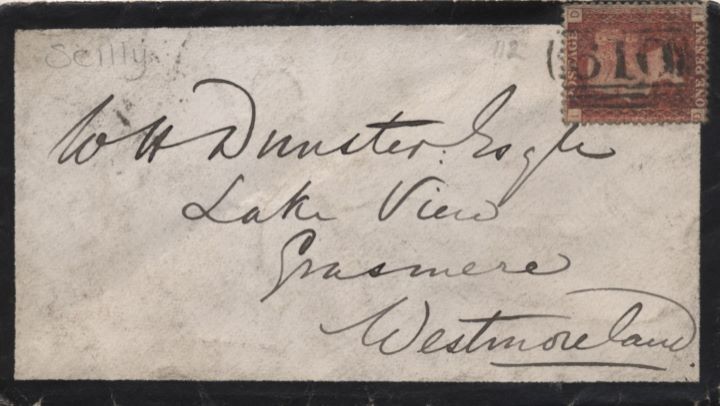 Scilly
112
D I
POSTAGE
ONE PENNY
I D
510
W H Dunster Esqre
Lake View
Grasmere
Westmoreland